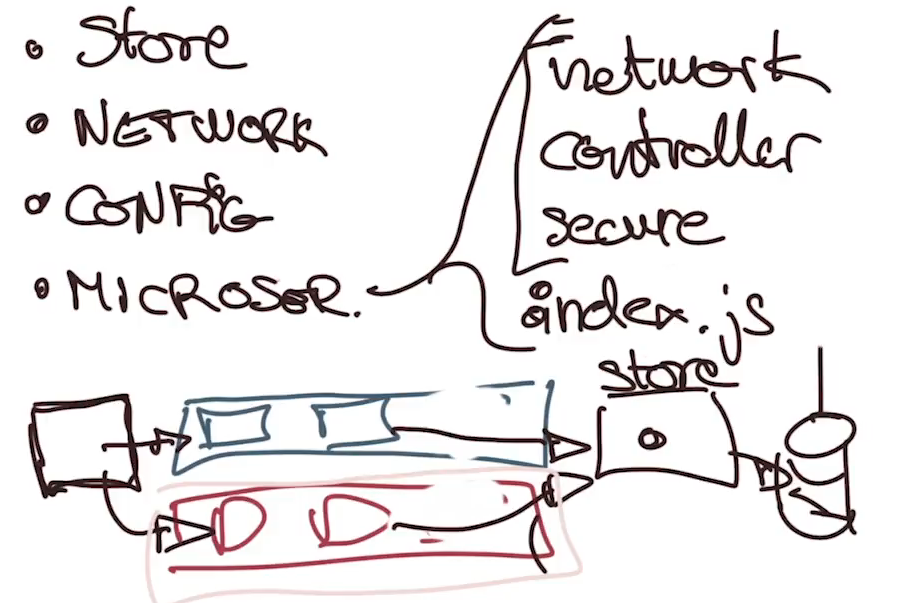 Store
NETWORK
CONFIG
MICROSER.
network
controller
secure
index.js
store